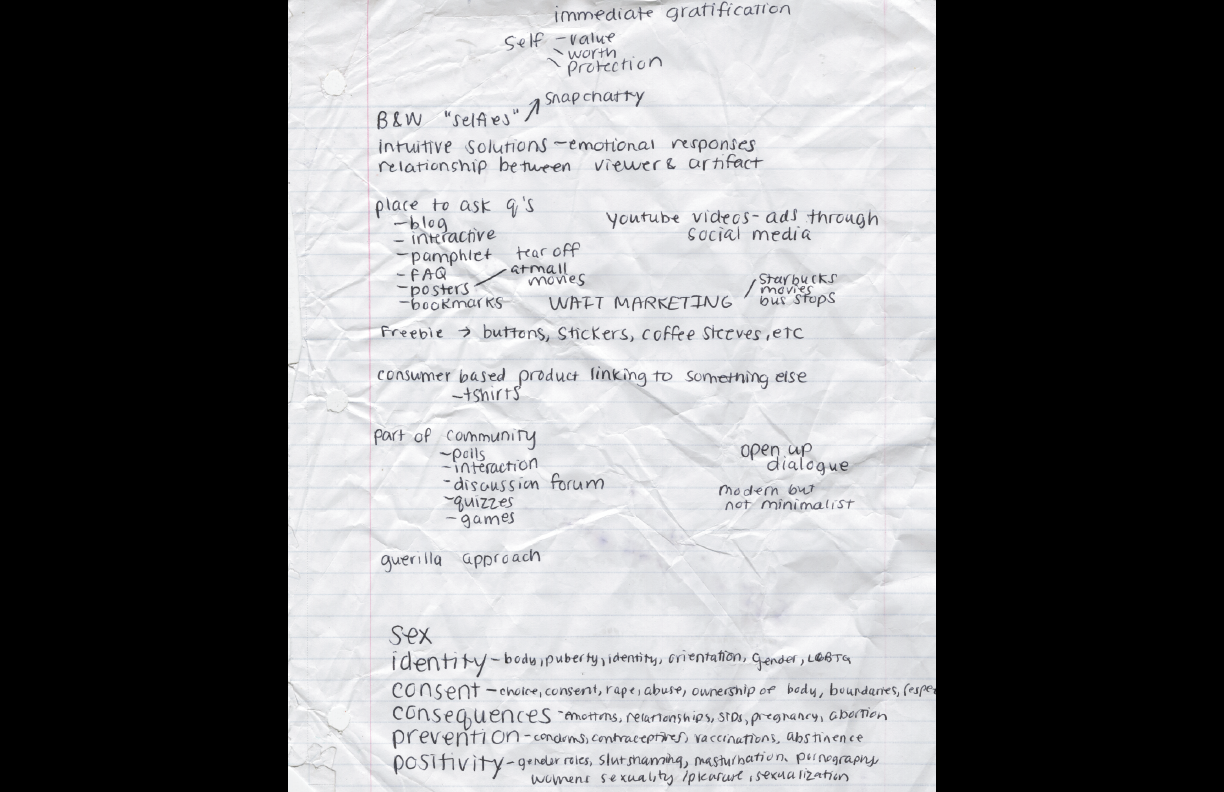 immediate gratification
self - value
- worth
- protection
snapchatty
B&W "selfies"
intuitive solutions - emotional responses
relationship between viewer & artifact
place to ask q's
- blog
- interactive
- pamphlet tear off
- FAQ at mall
- posters movies
- bookmarks
youtube videos - ads through
social media
WAIT MARKETING
Starbucks
movies
bus stops
Freebie → buttons, stickers, coffee sleeves, etc
consumer based product linking to something else
- tshirts
part of community
- polls
- interaction
- discussion forum
- quizzes
- games
open up
dialogue
modern but
not minimalist
guerilla approach
sex
identity - body, puberty, identity, orientation, gender, LGBTQ
consent - choice, consent, rape, abuse, ownership of body, boundaries, respe
consequences - emotions, relationships, STDs, pregnancy, abortion
prevention - condoms, contraceptives, vaccinations, abstinence
positivity - gender roles, slutshaming, masturbation, pornography
womens sexuality / pleasure, sexualization